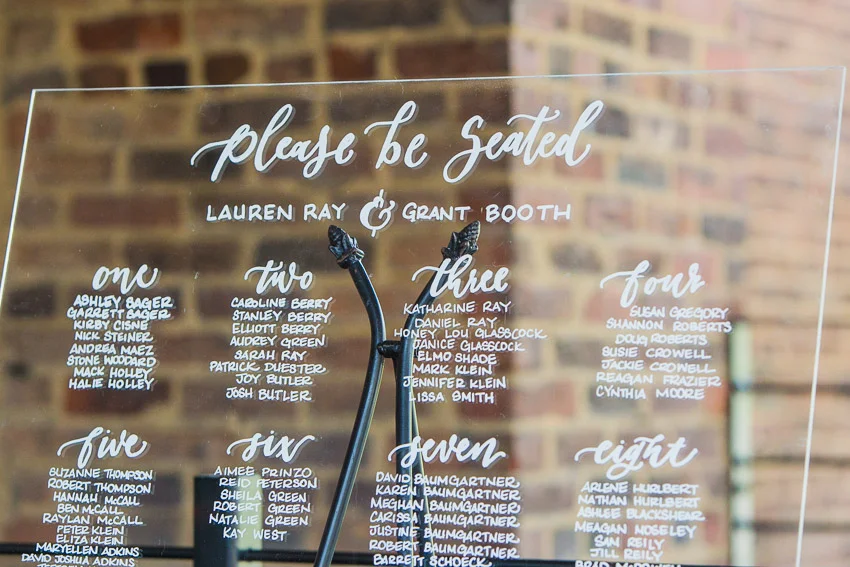 please be seated
LAUREN RAY & GRANT BOOTH
one
ASHLEY SAGER
GARRETT SAGER
KIRBY CISNE
NICK STEINER
ANDREA MAEZ
STONE WODDARD
MACK HOLLEY
HALIE HOLLEY
two
CAROLINE BERRY
STANLEY BERRY
ELLIOTT BERRY
AUDREY GREEN
SARAH RAY
PATRICK DUESTER
JOY BUTLER
JOSH BUTLER
three
KATHARINE RAY
DANIEL RAY
HONEY LOU GLASSCOCK
JANICE GLASSCOCK
ELMO SHADE
MARK KLEIN
JENNIFER KLEIN
LISSA SMITH
four
SUSAN GREGORY
SHANNON ROBERTS
DOUG ROBERTS
SUSIE CROWELL
JACKIE CROWELL
REAGAN FRAZIER
CYNTHIA MOORE
five
SUZANNE THOMPSON
ROBERT THOMPSON
HANNAH McCALL
BEN McCALL
RAYLAN McCALL
PETER KLEIN
ELIZA KLEIN
MARYELLEN ADKINS
DAVID JOSHUA ADKINS
six
AIMEE PRINZO
REID PETERSON
SHEILA GREEN
ROBERT GREEN
NATALIE GREEN
KAY WEST
seven
DAVID BAUMGARTNER
KAREN BAUMGARTNER
MEGHAN BAUMGARTNER
CARISSA BAUMGARTNER
JUSTINE BAUMGARTNER
ROBERT BAUMGARTNER
BARRETT SCHOECK
eight
ARLENE HURLBERT
NATHAN HURLBERT
ASHLEE BLACKSHEAR
MEAGAN MOSELEY
SAN REILY
JILL REILY